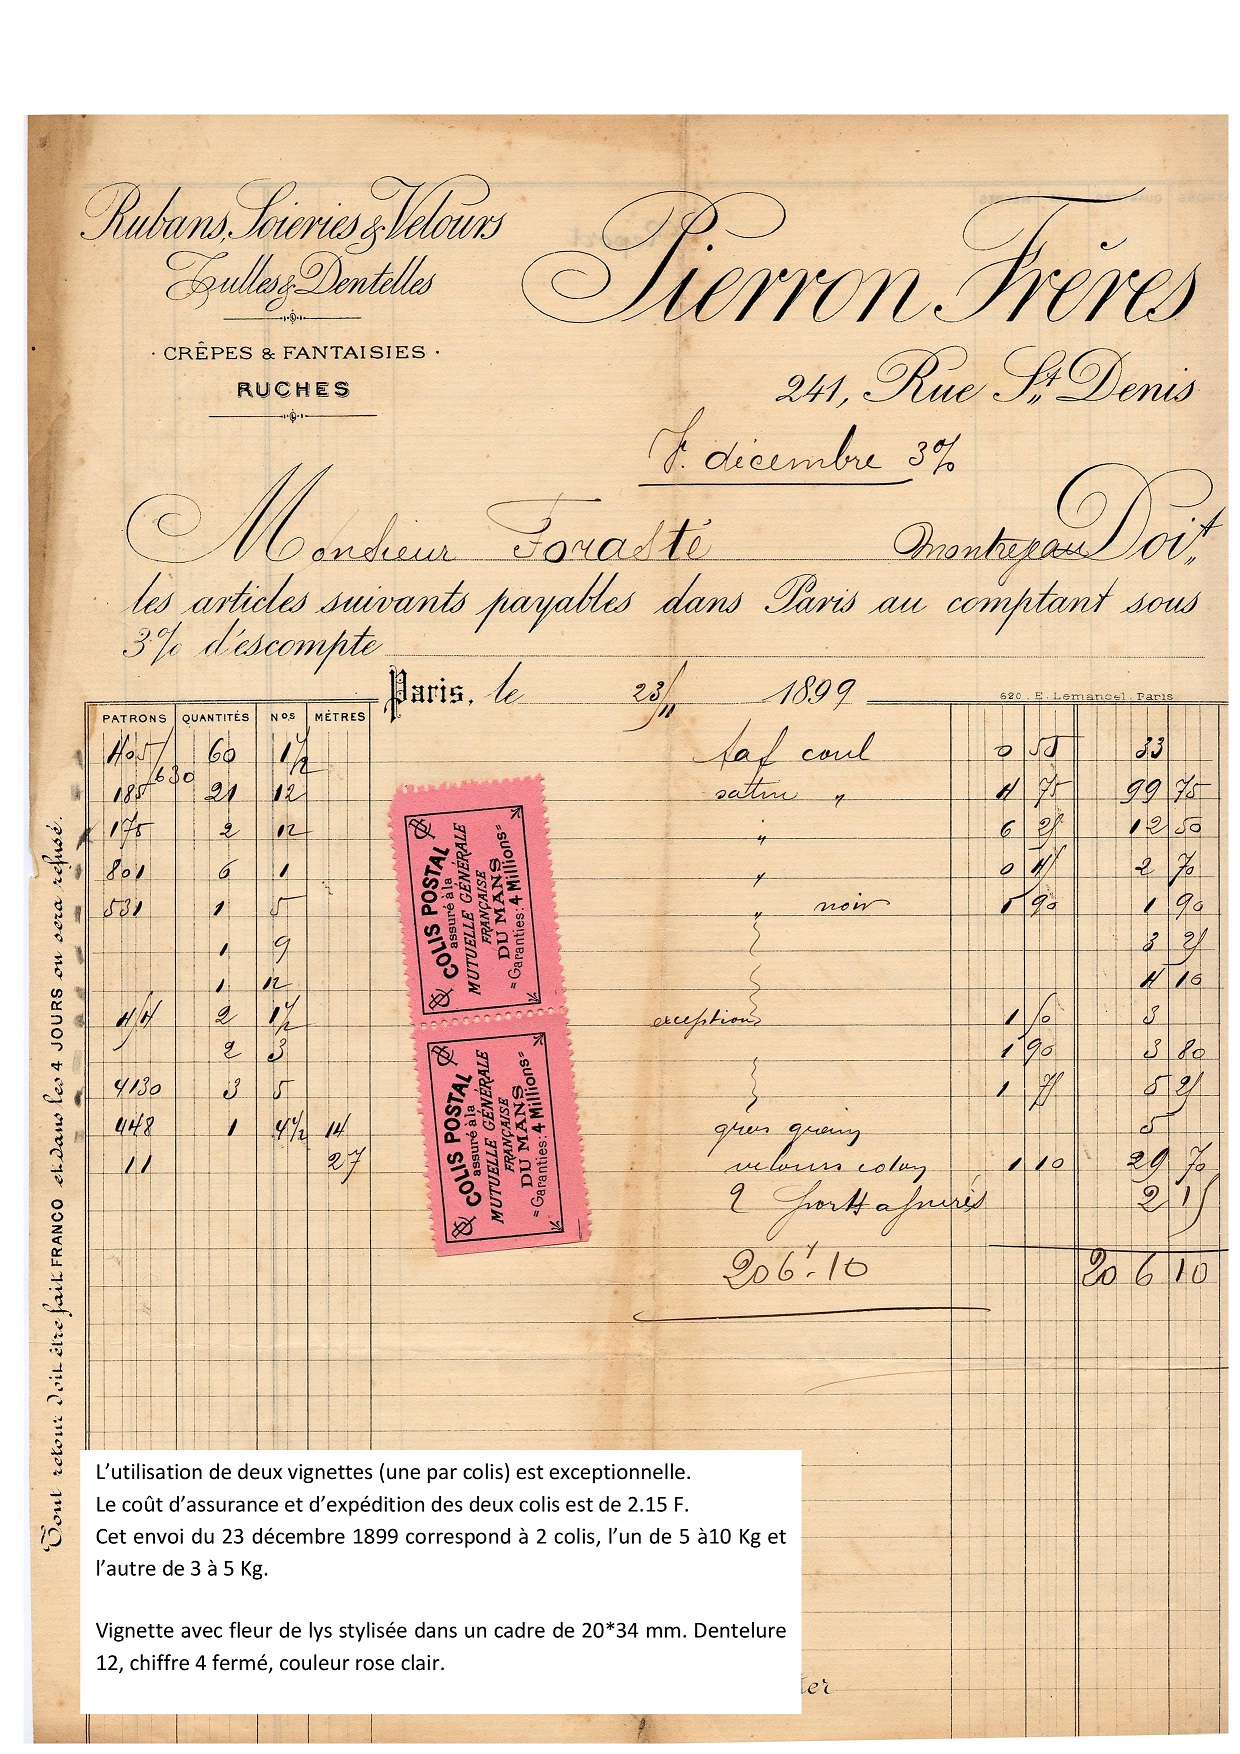 Rubans, Soieries & Velours
Tulles & Dentelles
· CRÊPES & FANTAISIES ·
RUCHES
Pierron Frères
241, Rue St. Denis
décembre 3%
Monsieur Forasté Montrejeau Doit
les articles suivants payables dans Paris au comptant sous
3% d'escompte
Paris, le 23/11 1899
620. E. Lemancel. Paris
PATRONS QUANTITÉS Nos MÈTRES
405/630 60 1½ taf coul 0 55 33
185 21 12 satin " 4 75 99 75
175 2 12 " 6 25 12 50
801 6 1 " 0 45 2 70
531 1 5 " noir 1 90 1 90
1 9 3 25
1 12 4 10
2 1½ exception 1 50 3
2 3 1 90 3 80
4130 3 5 1 75 5 25
448 1 4½ 14 gros grain 5
11 27 velours 1 10 29 70
2 2 15
206f.10 206 10
COLIS POSTAL
assuré à la
MUTUELLE GÉNÉRALE
FRANÇAISE
DU MANS
=Garanties: 4 Millions=
COLIS POSTAL
assuré à la
MUTUELLE GÉNÉRALE
FRANÇAISE
DU MANS
=Garanties: 4 Millions=
Tout retour doit être fait FRANCO et dans les 4 JOURS ou sera refusé.
L'utilisation de deux vignettes (une par colis) est exceptionnelle.
Le coût d'assurance et d'expédition des deux colis est de 2.15 F.
Cet envoi du 23 décembre 1899 correspond à 2 colis, l'un de 5 à10 Kg et
l'autre de 3 à 5 Kg.
Vignette avec fleur de lys stylisée dans un cadre de 20*34 mm. Dentelure
12, chiffre 4 fermé, couleur rose clair.